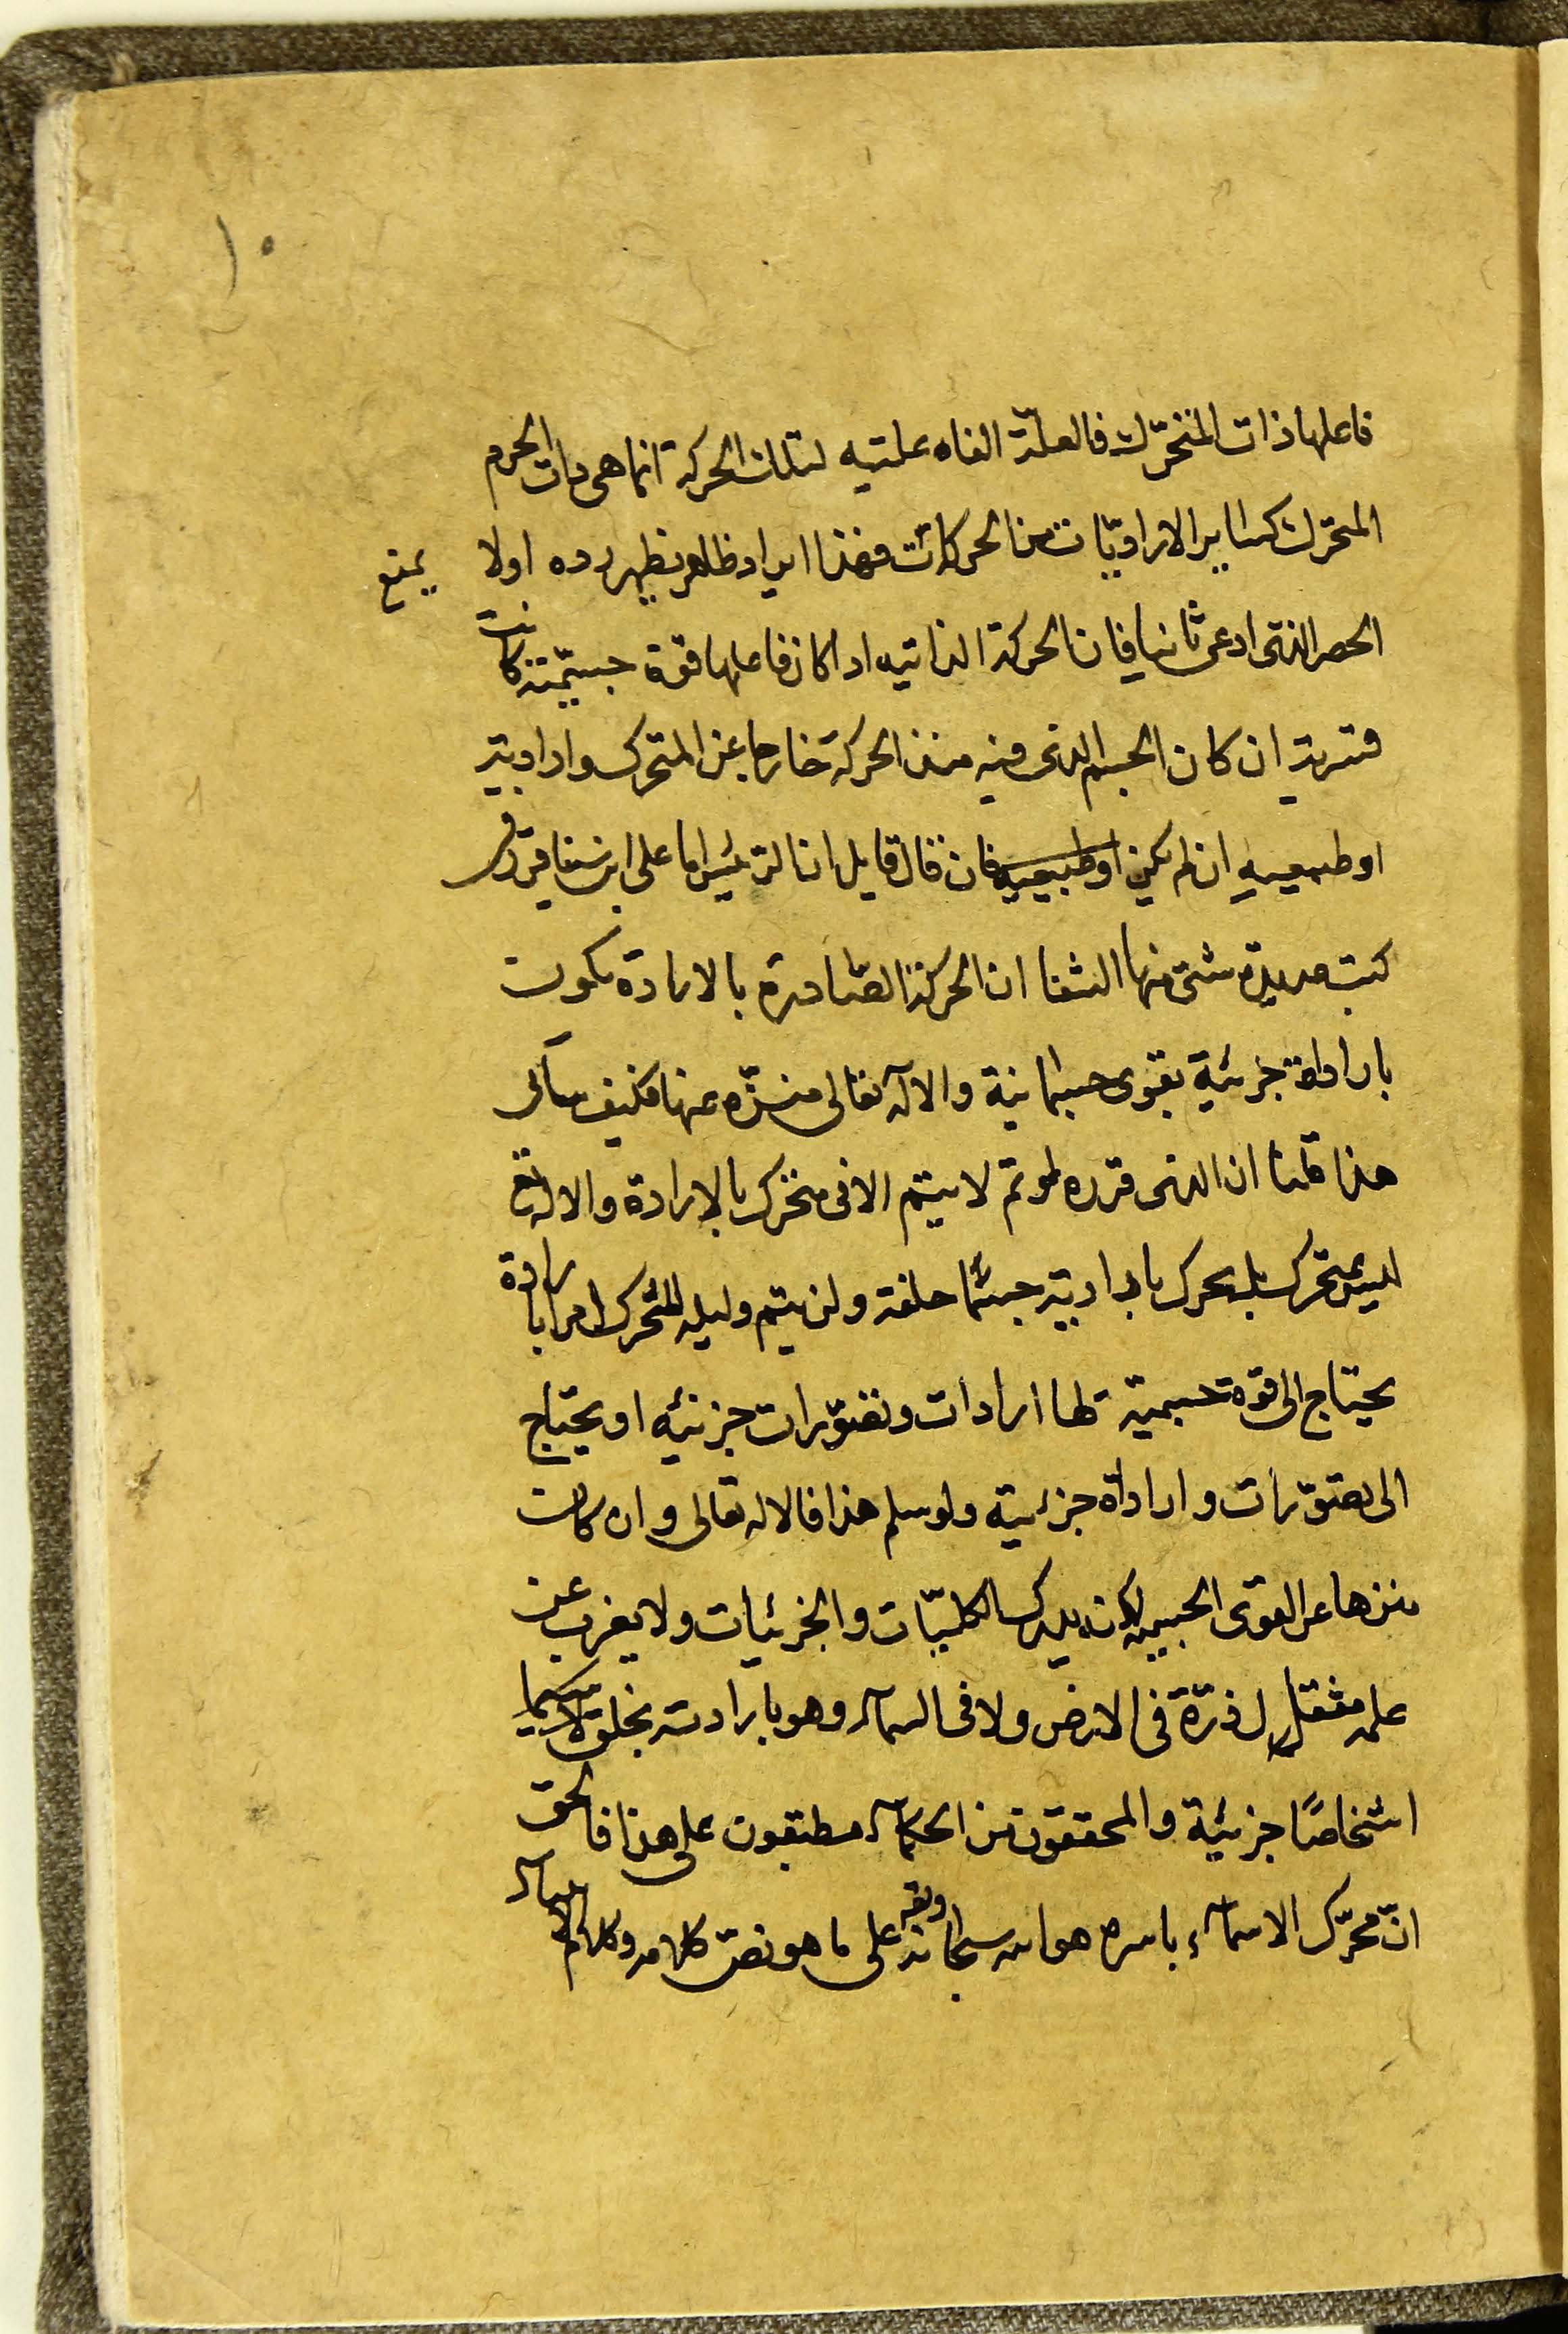 ١٠
فاعلها ذات المتحرك فالعلّة الفاعلتيه لتلك الحركة انما هى ذات الجرم
المتحرك كساير الاراديّات من الحركات فهذا ايراد ظاهر يظهر رده اولا يمنع
الحصر الذى ادعى ثانيا فان الحركة الذاتيه اذا كان فاعلها قوة جسميّة كانت
قسرية ان كان الجسم الذى فيه مبدء الحركة خارجا عن المتحرك وارادية
او طبيعيه ان لم يكن او طبيعيه فان قال قايل ان الرئيس ابا على ابن سينا قرر فى
كتب عديدة شتى منها الشفا ان الحركة الصّادرة بالارادة يكون
بارادة جزئية بقوى جسمانية والاله تعالى منزّه عنها فكيف سائر
هذا قلنا ان الذى قرره لو تم لا يتم الا فى متحرك بالارادة والاله تع
ليس بمتحرك بل يحرك بارادية جسما خلقه ولن يتم دليله المتحرك امرا بارادة
يحتاج الى قوة جسمية لها ارادات وتصوّرات جزئيه او يحتاج
الى تصوّرات وارادات جزئية ولو سلم هذا فالاله تعالى وان كان
منزها عن القوى الجسميه لكنه يدرك الكليّات والجزئيات ولا يعزب عن
علمه مثقال ذرّة فى الارض ولا فى السمآء وهو بارادته يخلق لا سيما
اشخاصًا جزئية والمحققون من الحكمآء مطبقون على هذا فالحق
انّ محرّك الاسمآء باسره هو الله سبحانه وتعالى على ما هو نص كلامه وكلام